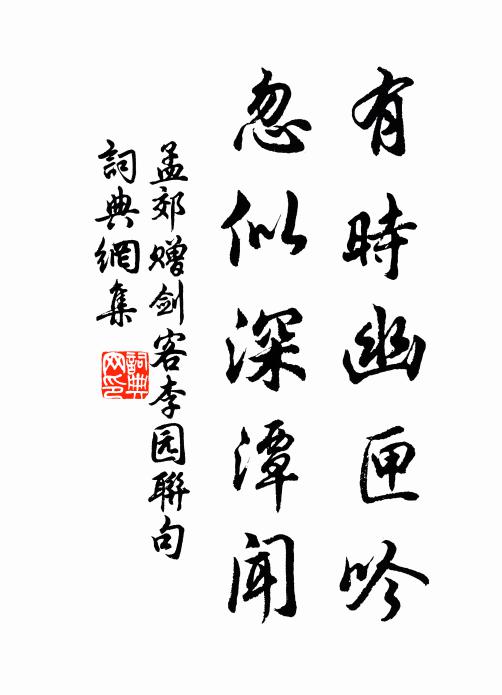 有時幽匣吟
忽似深潭聞
孟郊赠剑客李园聯句
詞典網集
詞典网印